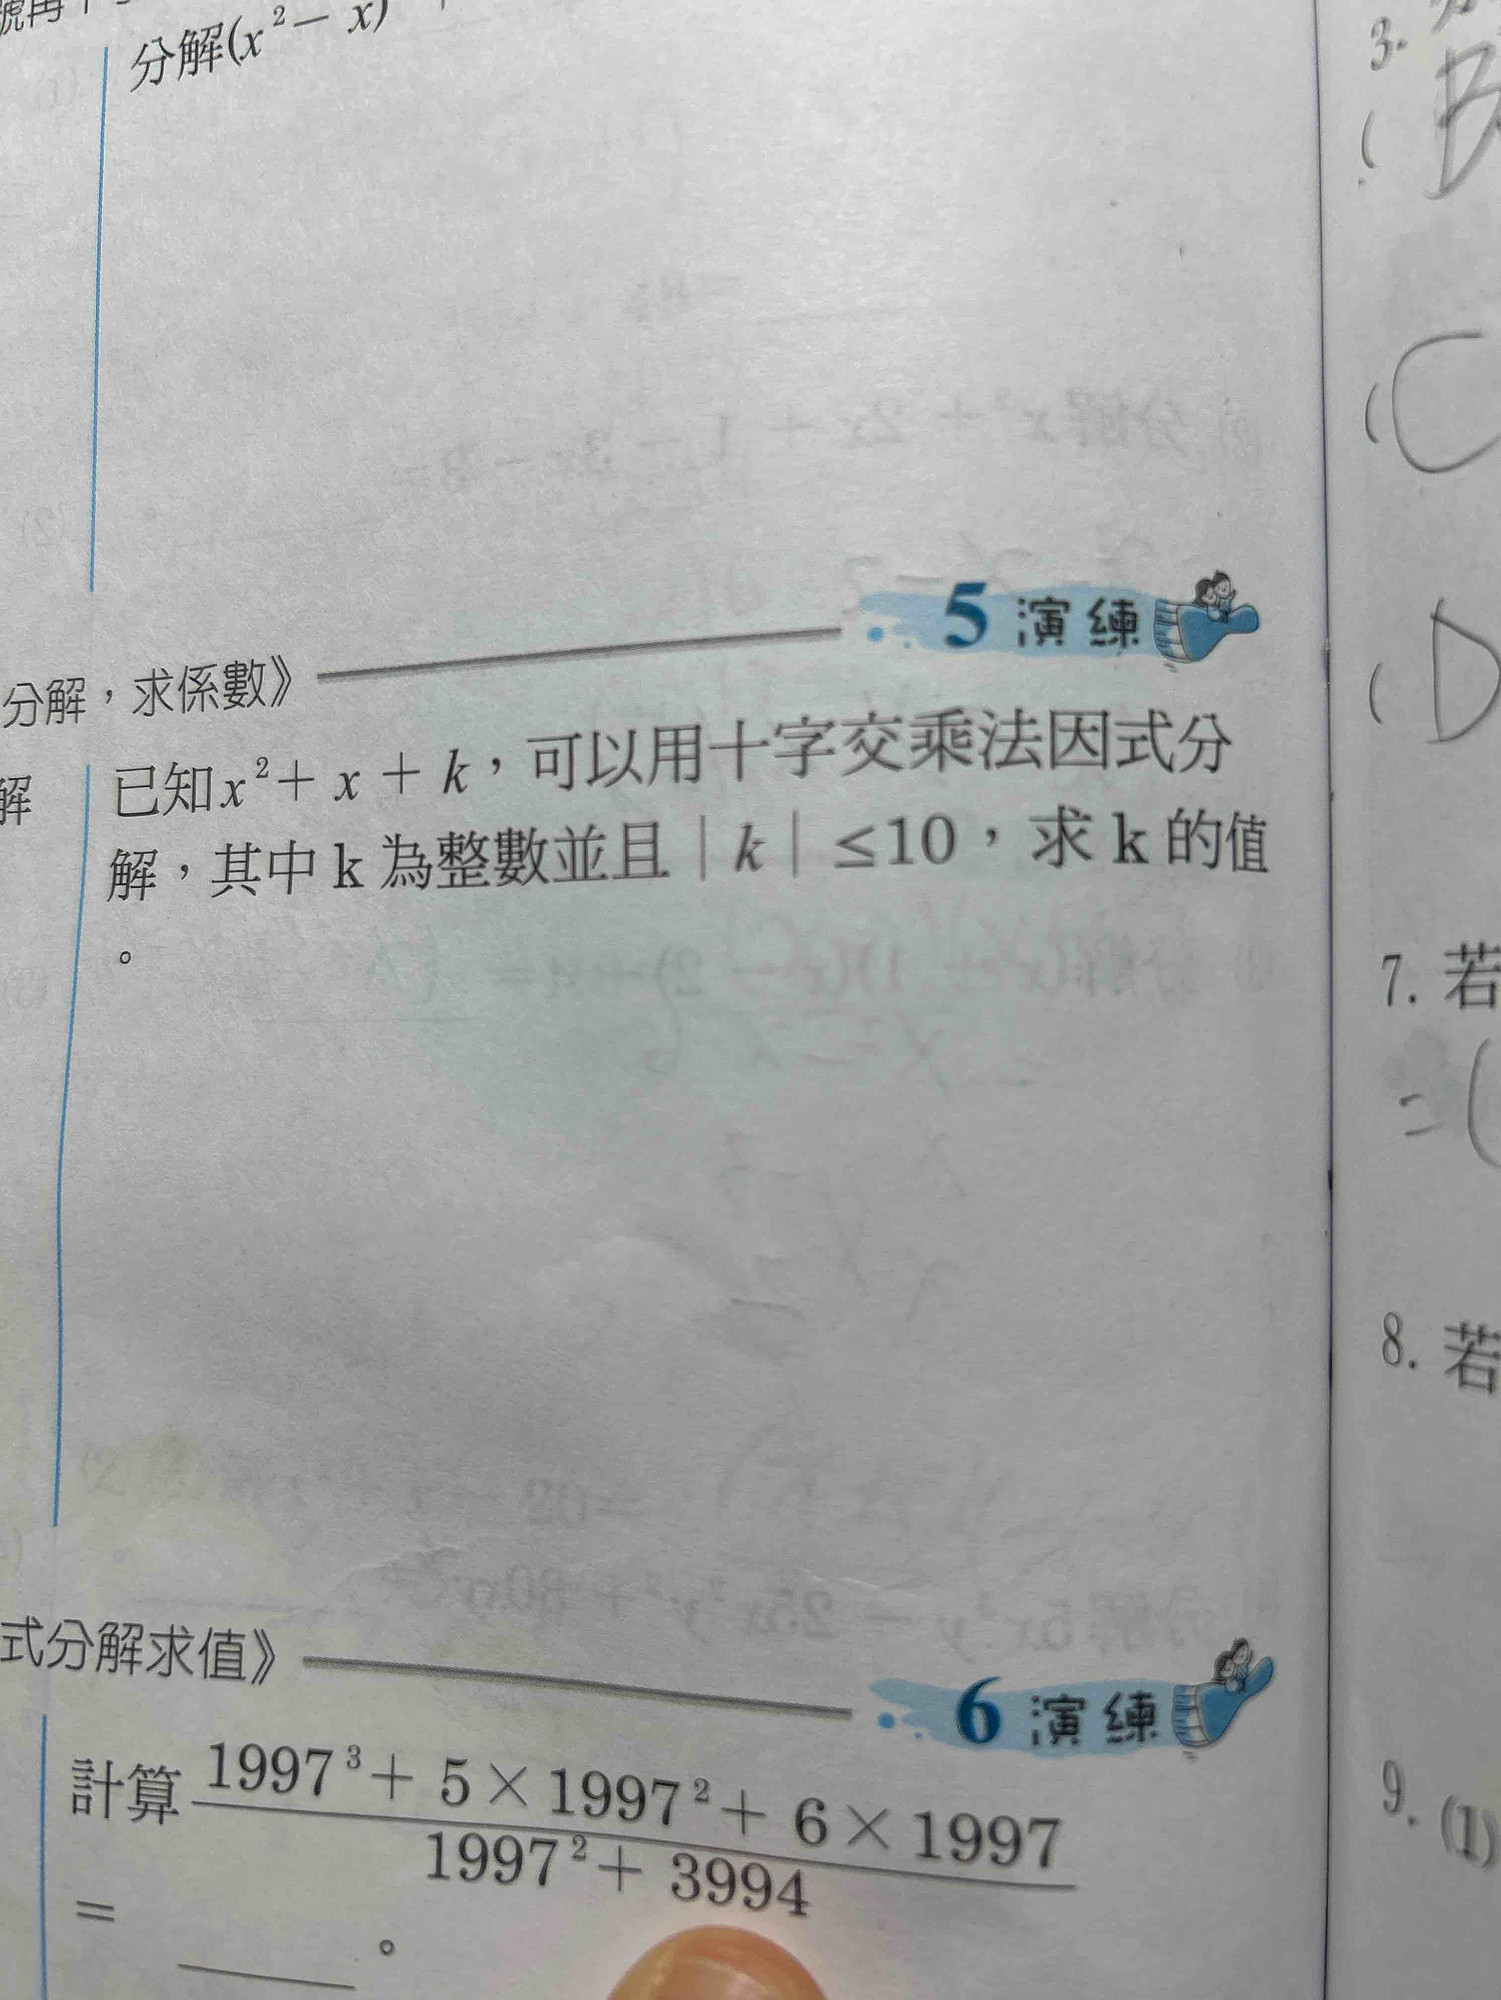 號再
分解(x²－x)
5 演練
分解，求係數》
解
已知x²＋x＋k，可以用十字交乘法因式分
解，其中k為整數並且｜k｜≤10，求k的值
。
式分解求值》
6 演練
計算 1997³＋5×1997²＋6×1997
1997²＋3994
＝＿＿＿。
3.
(
( C
( D
7. 若
= (
8. 若
9. (1)